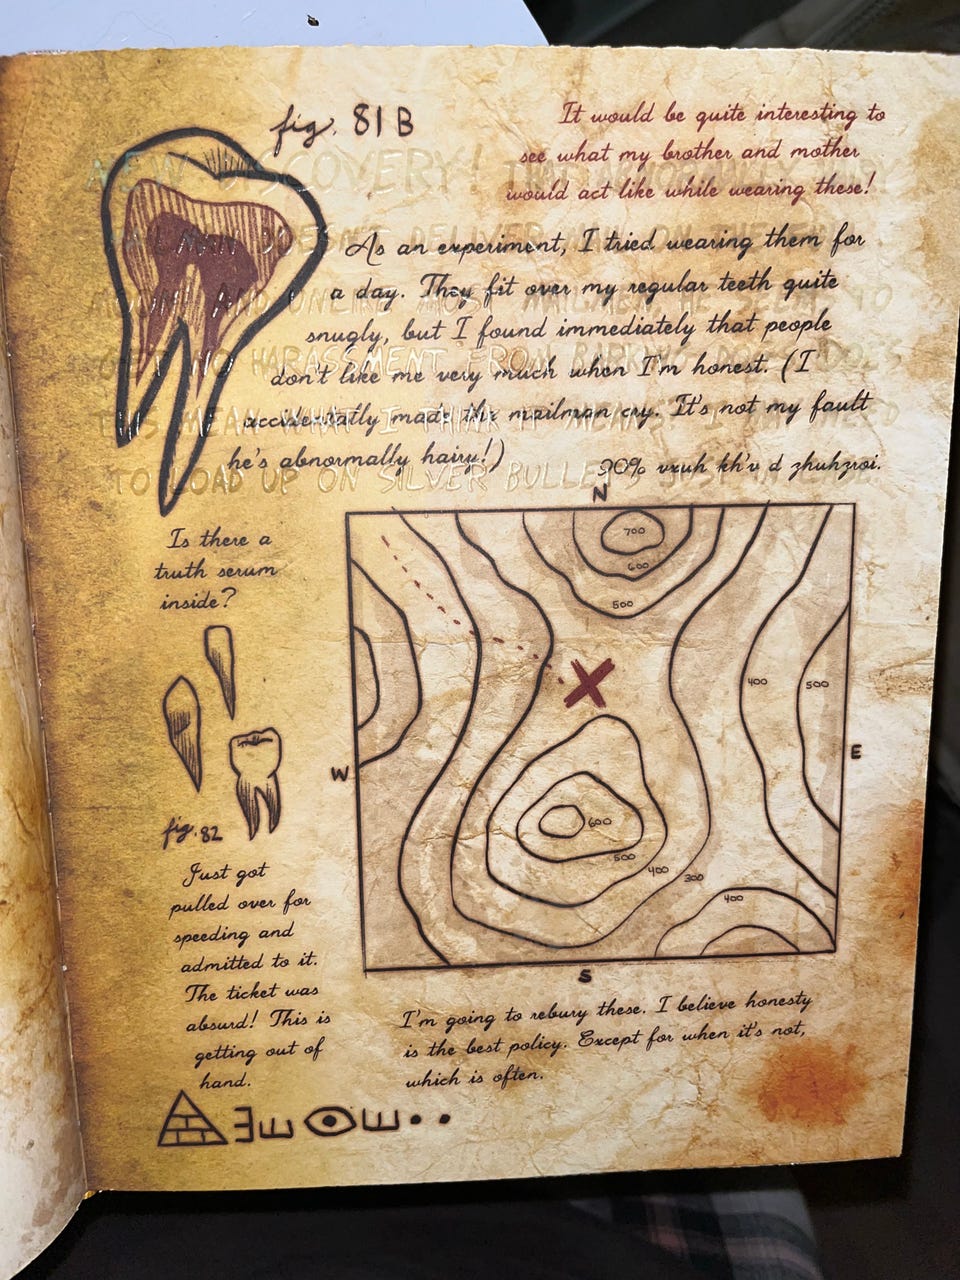 fig. 81B
It would be quite interesting to
see what my brother and mother
would act like while wearing these!
NEW DISCOVERY!
DOESN'T DELIVER
As an experiment, I tried wearing them for
a day. They fit over my regular teeth quite
snugly, but I found immediately that people
don't like me very much when I'm honest. (I
accidentally made the mailman cry. It's not my fault
he's abnormally hairy!)
NO HARASSMENT FROM BARKING DOGS. DOES
THIS MEAN WHAT I THINK IT MEANS? I MAY NEED
TO LOAD UP ON SILVER BULLETS JUST IN CASE.
90% vxuh kh'v d zhuhzroi.
Is there a
truth serum
inside?
fig. 82
N
700
600
500
400
500
W
E
600
500
400
300
400
S
Just got
pulled over for
speeding and
admitted to it.
The ticket was
absurd! This is
getting out of
hand.
I'm going to rebury these. I believe honesty
is the best policy. Except for when it's not,
which is often.